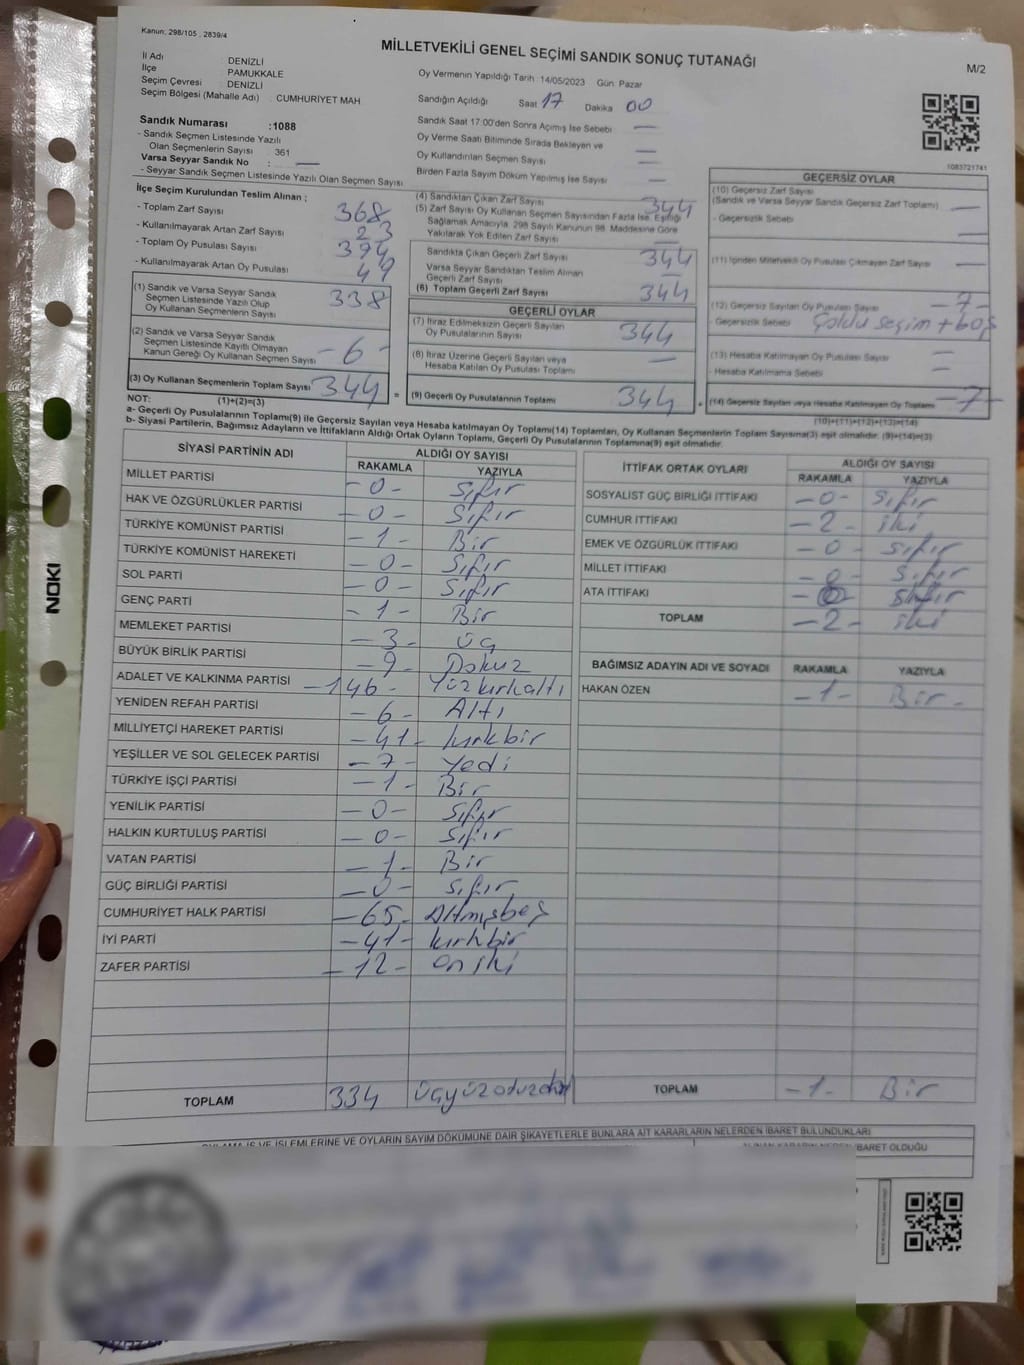 Kanun: 298/105 , 2839/4
MİLLETVEKİLİ GENEL SEÇİMİ SANDIK SONUÇ TUTANAĞI
M/2
İl Adı : DENİZLİ
İlçe : PAMUKKALE
Seçim Çevresi : DENİZLİ
Seçim Bölgesi (Mahalle Adı) : CUMHURİYET MAH
Oy Vermenin Yapıldığı Tarih :14/05/2023 Gün: Pazar
Sandığın Açıldığı Saat 17 Dakika 00
Sandık Saat 17:00'den Sonra Açımış İse Sebebi —
Oy Verme Saati Bitiminde Sırada Bekleyen ve
Oy Kullandırılan Seçmen Sayısı —
Birden Fazla Sayım Döküm Yapılmış İse Sayısı —
Sandık Numarası :1088
- Sandık Seçmen Listesinde Yazılı
Olan Seçmenlerin Sayısı 361
Varsa Seyyar Sandık No : —
- Seyyar Sandık Seçmen Listesinde Yazılı Olan Seçmen Sayısı
1083721741
İlçe Seçim Kurulundan Teslim Alınan ;
- Toplam Zarf Sayısı 368
- Kullanılmayarak Artan Zarf Sayısı 23
- Toplam Oy Pusulası Sayısı 394
- Kullanılmayarak Artan Oy Pusulası 49
(1) Sandık ve Varsa Seyyar Sandık
Seçmen Listesinde Yazılı Olup
Oy Kullanan Seçmenlerin Sayısı 338
(2) Sandık ve Varsa Seyyar Sandık
Seçmen Listesinde Kayıtlı Olmayan
Kanun Gereği Oy Kullanan Seçmen Sayısı - 6 -
(3) Oy Kullanan Seçmenlerin Toplam Sayısı 344 =
(4) Sandıktan Çıkan Zarf Sayısı 344
(5) Zarf Sayısı Oy Kullanan Seçmen Sayısından Fazla İse, Eşitliği
Sağlamak Amacıyla, 298 Sayılı Kanunun 98. Maddesine Göre
Yakılarak Yok Edilen Zarf Sayısı —
Sandıkta Çıkan Geçerli Zarf Sayısı 344
Varsa Seyyar Sandıktan Teslim Alınan
Geçerli Zarf Sayısı —
(6) Toplam Geçerli Zarf Sayısı 344
GEÇERLİ OYLAR
(7) İtiraz Edilmeksizin Geçerli Sayılan
Oy Pusulalarının Sayısı 344
(8) İtiraz Üzerine Geçerli Sayılan veya
Hesaba Katılan Oy Pusulası Toplamı —
(9) Geçerli Oy Pusulalarının Toplamı 344 +
GEÇERSİZ OYLAR
(10) Geçersiz Zarf Sayısı
(Sandık ve Varsa Seyyar Sandık Geçersiz Zarf Toplamı) —
- Geçersizlik Sebebi —
(11) İçinden Milletvekili Oy Pusulası Çıkmayan Zarf Sayısı —
(12) Geçersiz Sayılan Oy Pusulası Sayısı -7-
- Geçersizlik Sebebi seçim + boş
(13) Hesaba Katılmayan Oy Pusulası Sayısı —
- Hesaba Katılmama Sebebi —
(14) Geçersiz Sayılan veya Hesaba Katılmayan Oy Toplamı -7-
NOT: (1)+(2)=(3)
(10)+(11)+(12)+(13)=(14)
a- Geçerli Oy Pusulalarının Toplamı(9) ile Geçersiz Sayılan veya Hesaba katılmayan Oy Toplamı(14) Toplamları, Oy Kullanan Seçmenlerin Toplam Sayısına(3) eşit olmalıdır. (9)+(14)=(3)
b- Siyasi Partilerin, Bağımsız Adayların ve İttifakların Aldığı Ortak Oyların Toplamı, Geçerli Oy Pusulalarının Toplamına(9) eşit olmalıdır.
SİYASİ PARTİNİN ADI ALDIĞI OY SAYISI
RAKAMLA YAZIYLA
MİLLET PARTİSİ -0- Sıfır
HAK VE ÖZGÜRLÜKLER PARTİSİ -0- Sıfır
TÜRKİYE KOMÜNİST PARTİSİ -1- Bir
TÜRKİYE KOMÜNİST HAREKETİ -0- Sıfır
SOL PARTİ -0- Sıfır
GENÇ PARTİ -1- Bir
MEMLEKET PARTİSİ -3- üç
BÜYÜK BİRLİK PARTİSİ -9- Dokuz
ADALET VE KALKINMA PARTİSİ -146- Yüzkırkaltı
YENİDEN REFAH PARTİSİ -6- Altı
MİLLİYETÇİ HAREKET PARTİSİ -41- kırkbir
YEŞİLLER VE SOL GELECEK PARTİSİ -7- Yedi
TÜRKİYE İŞÇİ PARTİSİ -1- Bir
YENİLİK PARTİSİ -0- Sıfır
HALKIN KURTULUŞ PARTİSİ -0- Sıfır
VATAN PARTİSİ -1- Bir
GÜÇ BİRLİĞİ PARTİSİ -0- Sıfır
CUMHURİYET HALK PARTİSİ -65- Altmışbeş
İYİ PARTİ -41- kırkbir
ZAFER PARTİSİ -12- on iki
TOPLAM 334 üçyüzotuzdört
İTTİFAK ORTAK OYLARI ALDIĞI OY SAYISI
RAKAMLA YAZIYLA
SOSYALİST GÜÇ BİRLİĞİ İTTİFAKI -0- Sıfır
CUMHUR İTTİFAKI -2- iki
EMEK VE ÖZGÜRLÜK İTTİFAKI -0- Sıfır
MİLLET İTTİFAKI -0- Sıfır
ATA İTTİFAKI -0- Sıfır
TOPLAM -2- iki
BAĞIMSIZ ADAYIN ADI VE SOYADI RAKAMLA YAZIYLA
HAKAN ÖZEN -1- Bir
TOPLAM -1- Bir
OYLAMA İŞ VE İŞLEMLERİNE VE OYLARIN SAYIM DÖKÜMÜNE DAİR ŞİKAYETLERLE BUNLARA AİT KARARLARIN NELERDEN İBARET BULUNDUKLARI
ALINAN KARARIN NEDEN İBARET OLDUĞU
NOKI